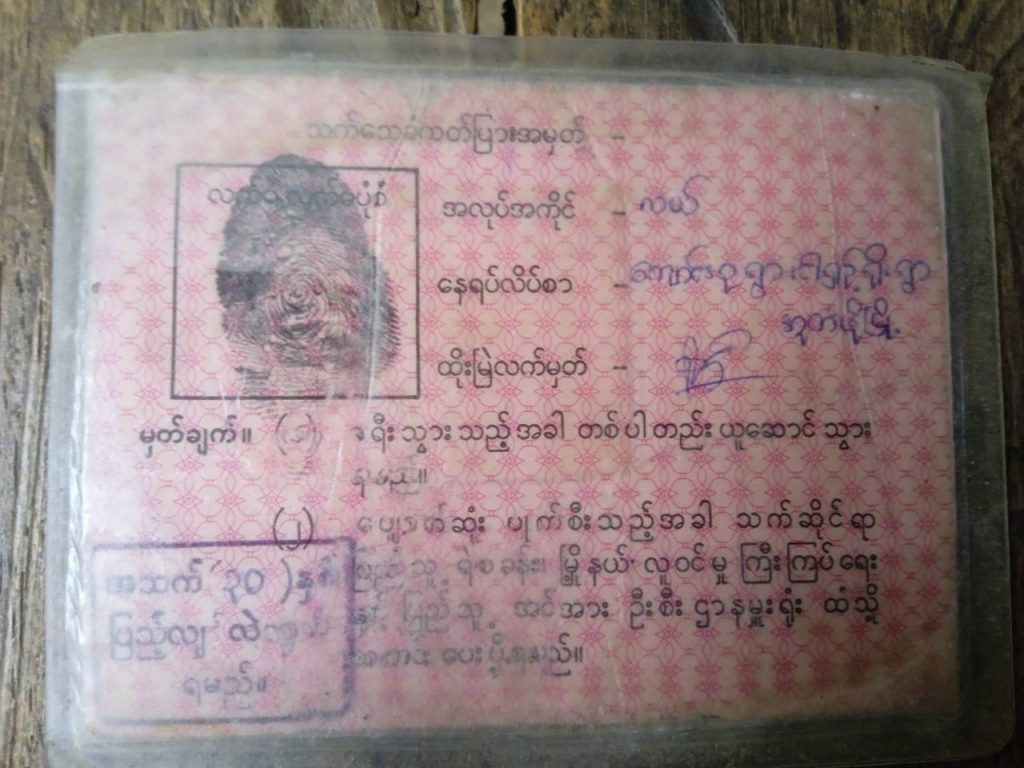 သက်သေခံကတ်ပြားအမှတ် -
အလုပ်အကိုင် - ကယ်
နေရပ်လိပ်စာ -
ထိုးမြဲလက်မှတ် -
မှတ်ချက်။ (၁) ခရီးသွားသည့်အခါ တစ်ပါတည်းယူဆောင်သွား
ရမည်။
(၂) ပျောက်ဆုံး ပျက်စီးသည့်အခါ သက်ဆိုင်ရာ
ပြည်သူ့ရဲစခန်း၊ မြို့နယ် လူဝင်မှု ကြီးကြပ်ရေး
နှင့် ပြည်သူ့ အင်အား ဦးစီးဌာနမှူးရုံး ထံသို့
သတင်း ပေးပို့ရမည်။
အသက် (၃၀) နှစ်
ပြည့်လျှင် လဲလှယ်
ရမည်။